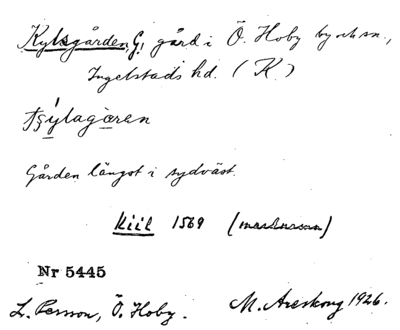 Kylsgården, G, gård i Ö. Hoby by och sn.,
Ingelstads hd. (K)
Gården längst i sydväst.
Kiil 1569
Nr 5445
L. Persson, Ö. Hoby. M. Areskoug 1926.